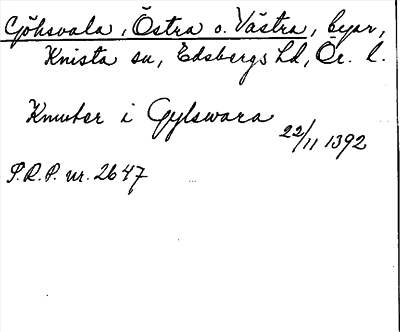 Göksvala, Östra o. Västra, byar,
Knista sn, Edsbergs hd, Ör. l.
Knwter i Gylswara
22/11 1392
P.R.P. nr. 2647